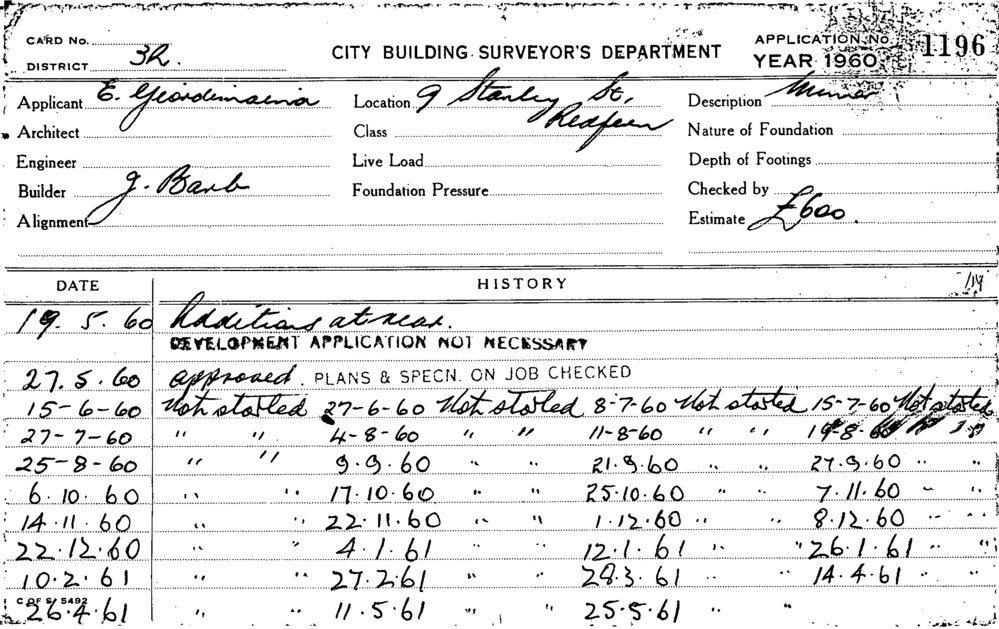 CARD No.
DISTRICT 32.
CITY BUILDING SURVEYOR'S DEPARTMENT
APPLICATION No. 1196
YEAR 1960
Applicant E.
Location 9 Stanley St,
Redfern
Description
Architect
Class
Nature of Foundation
Engineer
Live Load
Depth of Footings
Builder J. Barb
Foundation Pressure
Checked by
Alignment
Estimate £600.
DATE HISTORY
19. 5. 60 Additions at rear.
DEVELOPMENT APPLICATION NOT NECESSARY
27. 5. 60 approved. PLANS & SPECN. ON JOB CHECKED
15-6-60 Not started 27-6-60 Not started 8-7-60 Not started 15-7-60 Not started
27-7-60 " " 4-8-60 " " 11-8-60 " " 19-8-60
25-8-60 " " 9.9.60 " " 21.9.60 " " 27.9.60 " "
6.10.60 " " 17.10.60 " " 25.10.60 " " 7.11.60 " "
14.11.60 " " 22.11.60 " " 1.12.60 " " 8.12.60 " "
22.12.60 " " 4.1.61 " " 12.1.61 " " 26.1.61 " "
10.2.61 " " 27.2.61 " " 28.3.61 " " 14.4.61 " "
26.4.61 " " 11.5.61 " " 25.5.61 " "
C OF S/ 5492